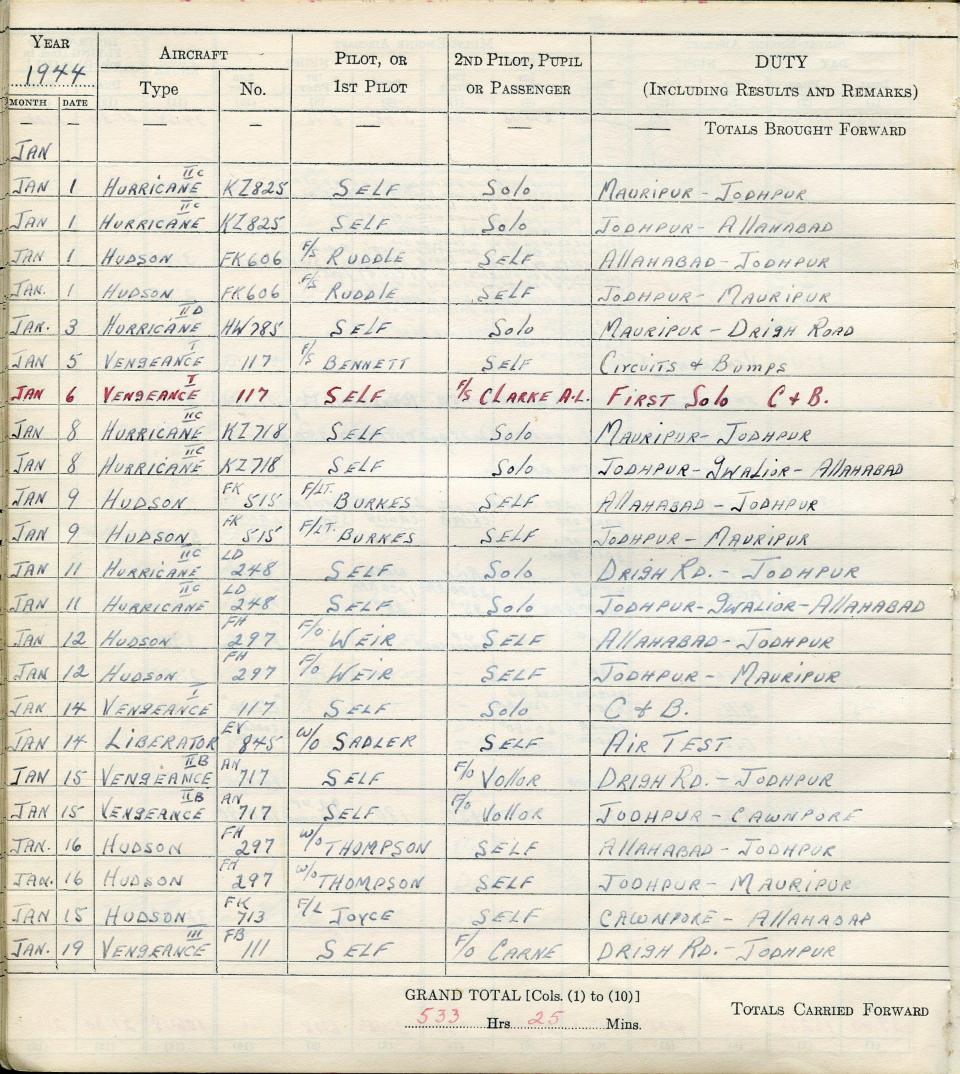 YEAR AIRCRAFT PILOT, OR 2ND PILOT, PUPIL DUTY
1944 Type No. 1ST PILOT OR PASSENGER (INCLUDING RESULTS AND REMARKS)
MONTH DATE
— — — — — — — TOTALS BROUGHT FORWARD
JAN
JAN 1 HURRICANE IIC KZ825 SELF Solo MAURIPUR - JODHPUR
JAN 1 HURRICANE IIC KZ825 SELF Solo JODHPUR - ALLAHABAD
JAN 1 HUDSON FK606 F/S RUDDLE SELF ALLAHABAD - JODHPUR
JAN. 1 HUDSON FK606 F/S RUDDLE SELF JODHPUR - MAURIPUR
JAN. 3 HURRICANE IID HW785 SELF Solo MAURIPUR - DRIGH ROAD
JAN 5 VENGEANCE I 117 F/S BENNETT SELF CIRCUITS & BUMPS
JAN 6 VENGEANCE I 117 SELF F/S CLARKE A.L. FIRST SOLO C & B.
JAN 8 HURRICANE IIC KZ718 SELF Solo MAURIPUR - JODHPUR
JAN 8 HURRICANE IIC KZ718 SELF Solo JODHPUR - GWALIOR - ALLAHABAD
JAN 9 HUDSON FK 515 F/LT. BURKES SELF ALLAHABAD - JODHPUR
JAN 9 HUDSON FK 515 F/LT. BURKES SELF JODHPUR - MAURIPUR
JAN 11 HURRICANE IIC LD 248 SELF Solo DRIGH RD. - JODHPUR
JAN 11 HURRICANE IIC LD 248 SELF Solo JODHPUR - GWALIOR - ALLAHABAD
JAN 12 HUDSON FH 297 F/O WEIR SELF ALLAHABAD - JODHPUR
JAN 12 HUDSON FH 297 F/O WEIR SELF JODHPUR - MAURIPUR
JAN 14 VENGEANCE I 117 SELF Solo C & B.
JAN 14 LIBERATOR EV 845 W/O SADLER SELF AIR TEST
JAN 15 VENGEANCE IIB AN 717 SELF F/O VOLLOR DRIGH RD. - JODHPUR
JAN 15 VENGEANCE IIB AN 717 SELF F/O VOLLOR JODHPUR - CAWNPORE
JAN. 16 HUDSON FH 297 W/O THOMPSON SELF ALLAHABAD - JODHPUR
JAN. 16 HUDSON FH 297 W/O THOMPSON SELF JODHPUR - MAURIPUR
JAN 15 HUDSON FK 713 F/L JOYCE SELF CAWNPORE - ALLAHABAD
JAN. 19 VENGEANCE III FB 111 SELF F/O CARNE DRIGH RD. - JODHPUR
GRAND TOTAL [Cols. (1) to (10)] TOTALS CARRIED FORWARD
533 Hrs. 25 Mins.